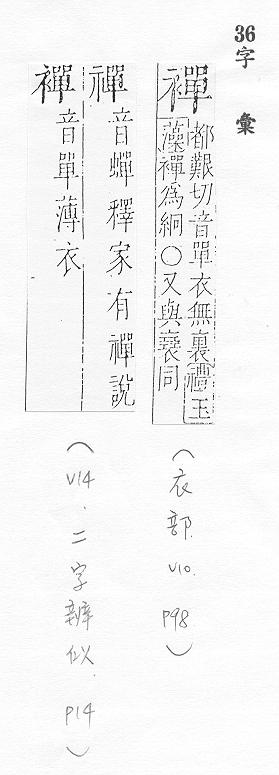 36字彙
襌
都艱切音單衣無裏禮玉
藻襌為絅○又與袞同
(衣部. V10. P98)
禪 音蟬釋家有禪說
襌 音單薄衣
(V14. 二字辨似. P14)